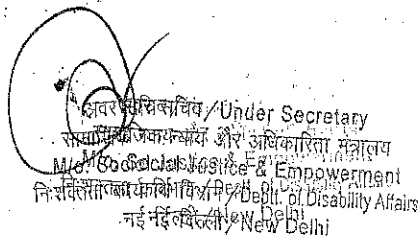 अवर सचिव / Under Secretary
सामाजिक न्याय और अधिकारिता मंत्रालय
M/o. Social Justice & Empowerment
निःशक्तता कार्य विभाग / Deptt. of Disability Affairs
नई दिल्ली / New Delhi